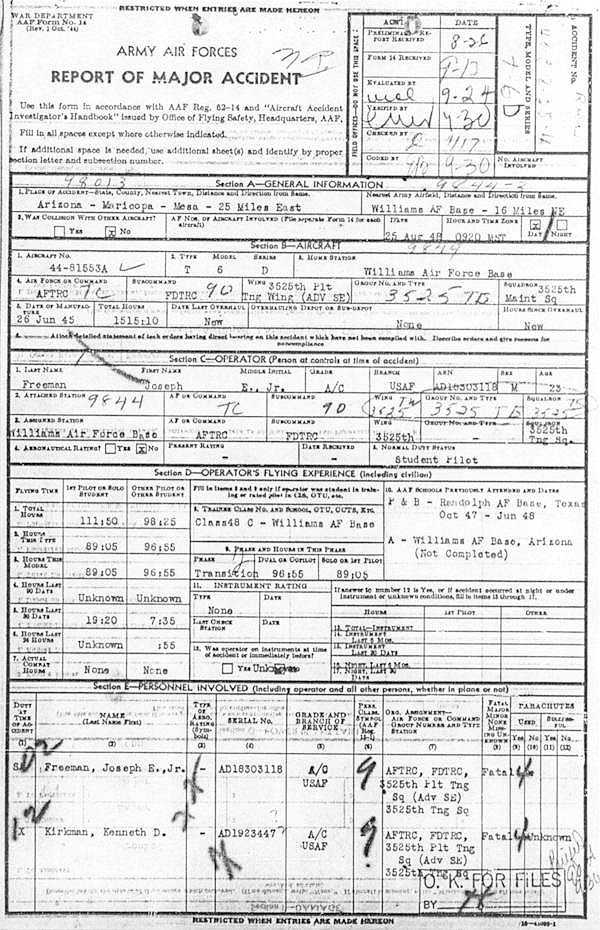 RESTRICTED WHEN ENTRIES ARE MADE HEREON
WAR DEPARTMENT
AAF Form No. 14
(Rev. 1 Oct. '44)
ARMY AIR FORCES
REPORT OF MAJOR ACCIDENT
Use this form in accordance with AAF Reg. 62-14 and "Aircraft Accident
Investigator's Handbook" issued by Office of Flying Safety, Headquarters, AAF.
Fill in all spaces except where otherwise indicated.
If additional space is needed, use additional sheet(s) and identify by proper
section letter and subsection number.
FIELD OFFICES—DO NOT USE THIS SPACE:
ACTION DATE
PRELIMINARY REPORT RECEIVED 8-26
FORM 14 RECEIVED 9-13
EVALUATED BY 9-24
VERIFIED BY 9-30
CHECKED BY 9/17
CODED BY 9-30
TYPE, MODEL AND SERIES
T 6D
ACCIDENT NO.
NO. AIRCRAFT INVOLVED
98013
Section A—GENERAL INFORMATION
9844-3
1. PLACE OF ACCIDENT—State, County, Nearest Town, Distance and Direction from Same.
Arizona - Maricopa - Mesa - 25 Miles East
Nearest Army Airfield, Distance and Direction from Same.
Williams AF Base - 16 Miles NE
2. WAS COLLISION WITH OTHER AIRCRAFT?
Yes x No
AF NOS. OF AIRCRAFT INVOLVED (File separate Form 14 for each aircraft)
DATE
25 Aug 48
HOUR AND TIME ZONE
0920 MST
x DAY NIGHT
Section B—AIRCRAFT
9844
1. AIRCRAFT NO.
44-81553A
2. TYPE MODEL SERIES
T 6 D
3. HOME STATION
Williams Air Force Base
4. AIR FORCE OR COMMAND
AFTRC TC
SUBCOMMAND
FDTRC 9D
WING
3525th Plt
Tng Wing (ADV SE)
GROUP NO. AND TYPE
3525 TE
SQUADRON
3525th
Maint Sq
5. DATE OF MANUFACTURE
26 Jun 45
TOTAL HOURS
1515:10
DATE LAST OVERHAUL
New
OVERHAULING DEPOT OR SUB-DEPOT
None
HOURS SINCE OVERHAUL
New
Attach detailed statement of tech orders having direct bearing on this accident which have not been complied with. Describe orders and give reasons for
noncompliance
Section C—OPERATOR (Person at controls at time of accident)
1. LAST NAME FIRST NAME MIDDLE INITIAL GRADE BRANCH ASN SEX AGE
Freeman Joseph E., Jr. A/C USAF AD18303118 M 23
2. ATTACHED STATION
9844
AF OR COMMAND
TC
SUBCOMMAND
9D
WING
3525
GROUP NO. AND TYPE
3525 TE
SQUADRON
3525
3. ASSIGNED STATION
Williams Air Force Base
AF OR COMMAND
AFTRC
SUBCOMMAND
FDTRC
WING
3525th
GROUP NO. AND TYPE
-
SQUADRON
3525th
Tng Sq.
4. AERONAUTICAL RATING? Yes x No
PRESENT RATING
-
DATE RECEIVED
-
5. NORMAL DUTY STATUS
Student Pilot
Section D—OPERATOR'S FLYING EXPERIENCE (Including civilian)
FLYING TIME 1ST PILOT OR SOLO STUDENT OTHER PILOT OR OTHER STUDENT
1. TOTAL HOURS 111:50 98:25
2. HOURS THIS TYPE 89:05 96:55
3. HOURS THIS MODEL 89:05 96:55
4. HOURS LAST 90 DAYS Unknown Unknown
5. HOURS LAST 30 DAYS 19:20 7:35
6. HOURS LAST 24 HOURS Unknown :55
7. ACTUAL COMBAT HOURS None None
Fill in items 8 and 9 only if operator was student in training or rated pilot in CIS, OTU, etc.
8. TRAINEE CLASS NO. AND SCHOOL, OTU, CCTS, ETC.
Class48 C - Williams AF Base
9. PHASE AND HOURS IN THIS PHASE
PHASE DUAL OR COPILOT SOLO OR 1ST PILOT
Transition 96:55 89:05
10. AAF SCHOOLS PREVIOUSLY ATTENDED AND DATES
P & B - Randolph AF Base, Texas
Oct 47 - Jun 48
A - Williams AF Base, Arizona
(Not Completed)
11. INSTRUMENT RATING
TYPE DATE
None
LAST CHECK STATION DATE
12. Was operator on instruments at time
of accident or immediately before?
Yes Unknown No
If answer to number 12 is Yes, or if accident occurred at night or under
instrument or unknown conditions, fill in items 13 through 17.
HOURS 1ST PILOT OTHER
13. TOTAL—INSTRUMENT
14. INSTRUMENT LAST 6 MOS.
15. INSTRUMENT LAST 30 DAYS
16. NIGHT LAST 6 MOS.
17. NIGHT, LAST 30 DAYS
Section E—PERSONNEL INVOLVED (Including operator and all other persons, whether in plane or not)
DUTY AT TIME OF ACCIDENT
NAME (Last Name First)
TYPE OF AERO. RATING (Symbols)
SERIAL NO.
GRADE AND BRANCH OF SERVICE
PERS. CLASS. SYMBOL (AAF Reg. 15-1)
ORG. ASSIGNMENT—AIR FORCE OR COMMAND GROUP NUMBER AND TYPE STATION
FATAL MAJOR MINOR NONE MISSING UNKNOWN
PARACHUTES
USED SUCCESSFUL
Yes No Yes No
(1) (2) (3) (4) (5) (6) (7) (8) (9) (10) (11) (12)
Freeman, Joseph E.,Jr. - AD18303118 A/C USAF 9
AFTRC, FDTRC,
3525th Plt Tng
Sq (Adv SE)
3525th Tng Sq
Fatal
X Kirkman, Kenneth D. - AD1923447 A/C USAF 9
AFTRC, FDTRC,
3525th Plt Tng
Sq (Adv SE)
3525th Tng Sq
Fatal Unknown
O. K. FOR FILES
BY
RESTRICTED WHEN ENTRIES ARE MADE HEREON